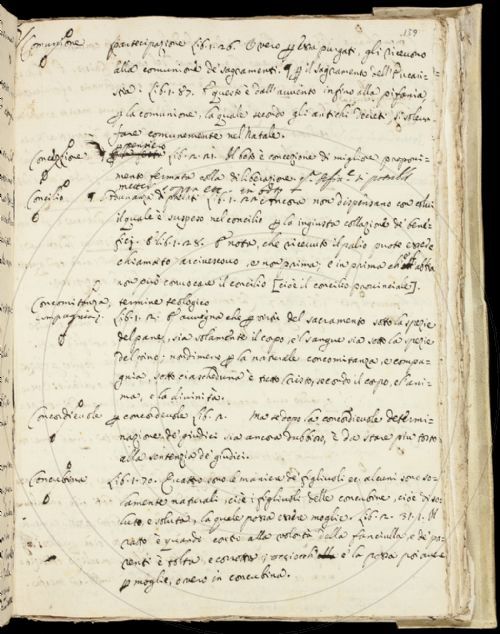 139
Comunione partecipazione Lib. 1. 26. Overo p essa purgati, gli ricevono
alla comunione de' sagramenti. ¶ p il sagramento dell'Eucari-
stia: Lib. 1. 87. E questo è dall'avvento infino alla pifania
p la comunione, la quale secondo gli antichi Decreti si solea
fare comunemente nel Natale.
Concezione Lib. 2. 21. Il boto è concezione di migliore proponi-
mento fermata colla diliberazione
Concilio Adunanza di prelati Lib. 1. 21. Ancora non dispensano con colui
il quale è suspeso nel concilio p la ingiusta collazione de' bene-
ficj. E lib. 1. 28. E nota, che ricevuto il palio puote essere
chiamato arcivescovo, e non prima; e in prima ch' abbia
non può convocare il concilio [cioè il concilio provinciale].
Concomitanza, termine teologico
compagnia Lib. 1. 12. E avvegna che p virtù del sacramento sotto la spezie
del pane, sia solamente il corpo, e 'l sangue sia sotto la spezie
del vino; nondimeno p la naturale concomitanza, e compa-
gnia, sotto ciascheduna è tutto Cristo, secondo il corpo, e l'ani-
ma, e la divinità.
Concordievole p concordevole Lib. 2. Ma se dopo la concordievole determi-
nazione de' giudici sia ancora dubbio, è da stare più tosto
alla sentenzia de' giudici.
Concubina Lib. 1. 70. Quattro sono le maniere de' figliuoli ec. alcuni sono so-
lamente naturali, cioè i figliuoli delle concubine, cioè di so-
luto, e soluta, la quale potea essere moglie. Lib. 2. 31. Il
ratto è quando contro alla volontà della fanciulla, e de' pa-
renti è tolta, e corrotta; è la possa poi avere
p moglie, overo in concubina.